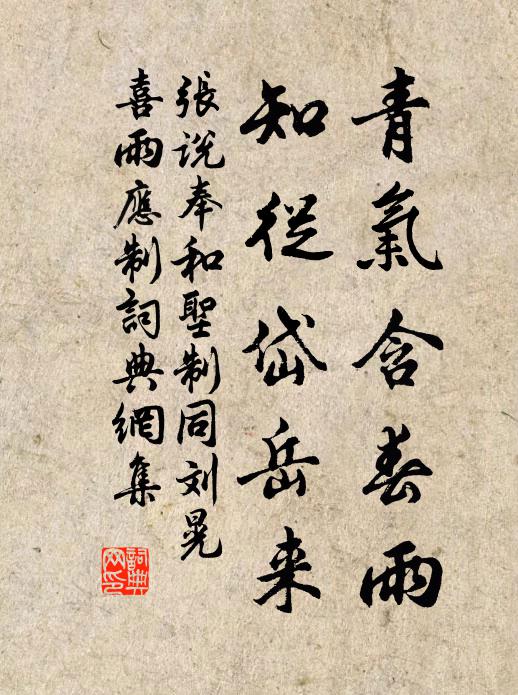 青氣含春雨
知從岱岳来
張說奉和聖制同刘晃
喜雨應制詞典網集
詞典网印